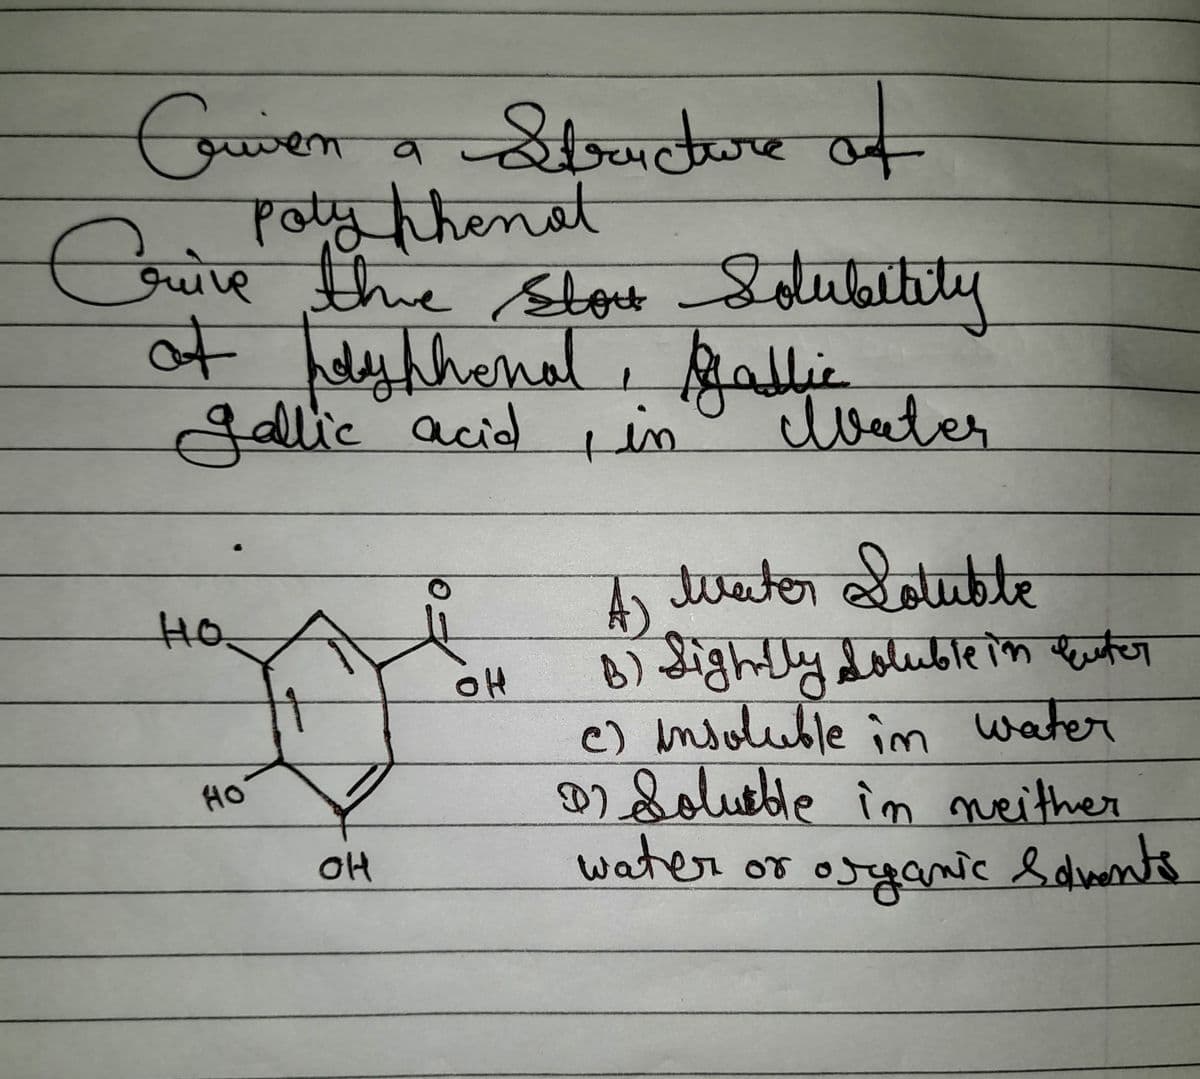 Given a Structure of
polyphenol
Give the Solubility
of polyphenol, gallic
gallic acid, in water
HO
O
OH
HO
OH
A) water Soluble
B) Sightly Soluble in water
C) Insoluble in water
D) Soluble in neither
water or organic Solvents